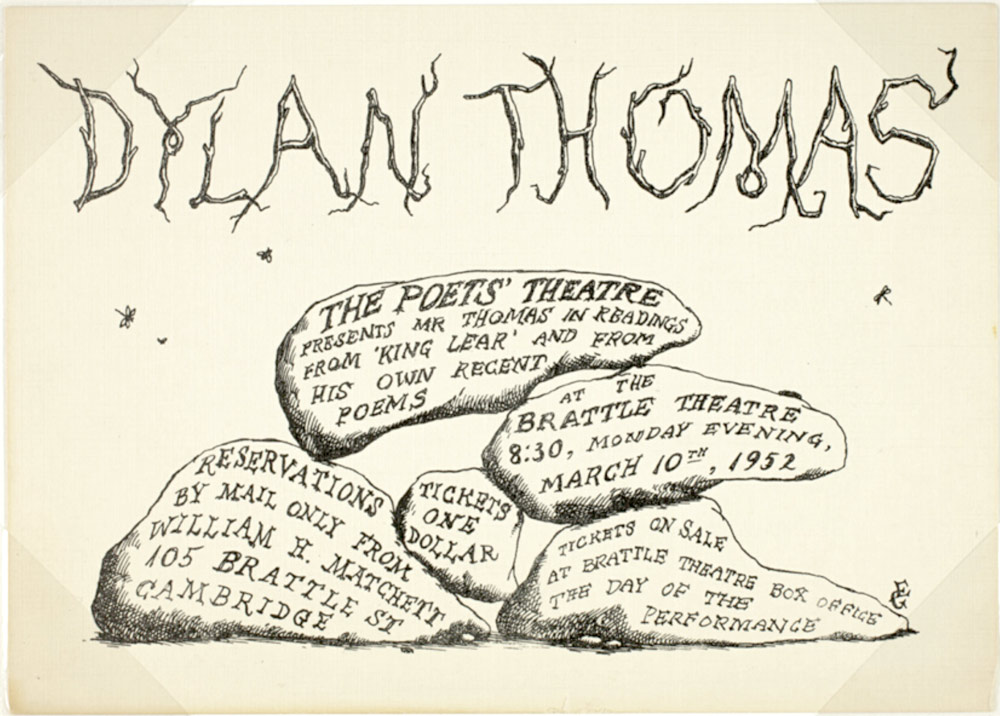 DYLAN THOMAS
THE POETS' THEATRE
PRESENTS MR THOMAS IN READINGS
FROM 'KING LEAR' AND FROM
HIS OWN RECENT
POEMS
AT THE
BRATTLE THEATRE
8:30, MONDAY EVENING,
MARCH 10TH, 1952
RESERVATIONS
BY MAIL ONLY FROM
WILLIAM H. MATCHETT
105 BRATTLE ST
CAMBRIDGE
TICKETS
ONE
DOLLAR
TICKETS ON SALE
AT BRATTLE THEATRE BOX OFFICE
THE DAY OF THE
PERFORMANCE
EG